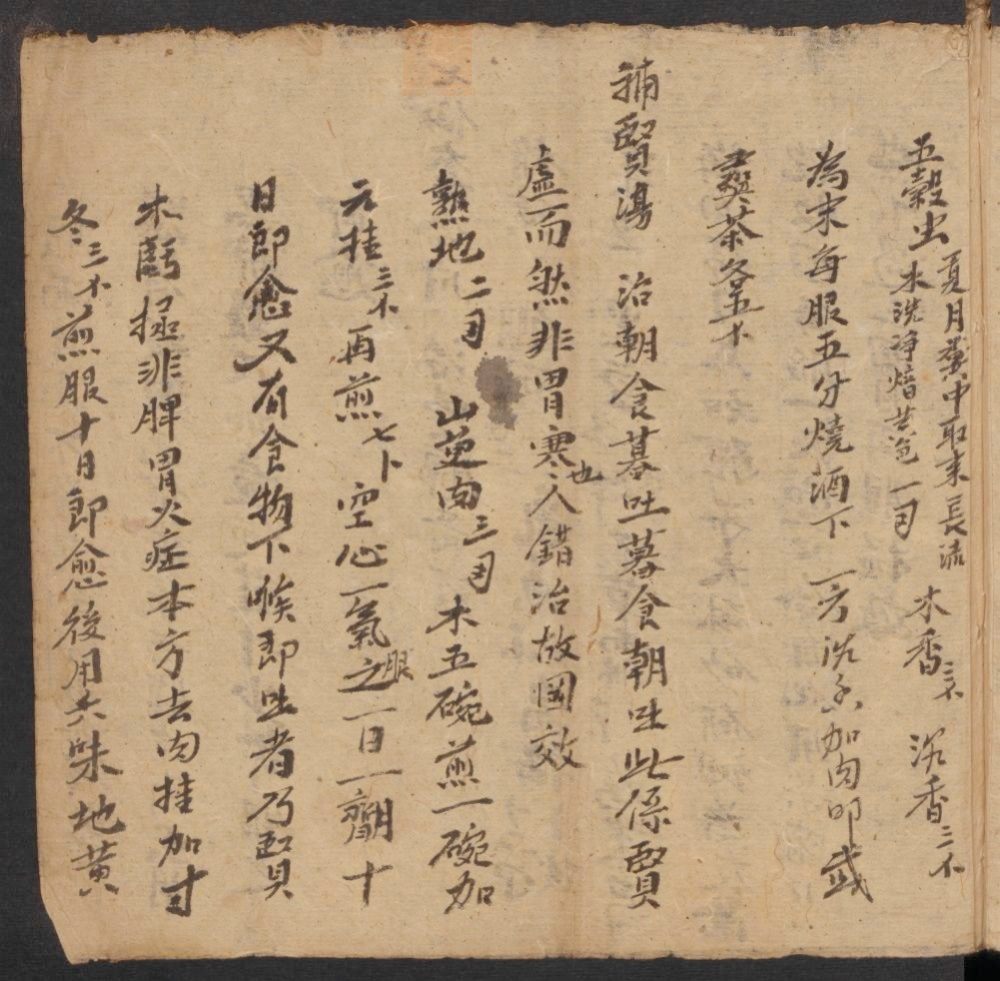 五穀虫 夏月糞中取來長流水洗淨焙黃色一刄 木香三卜 沉香三卜
為末每服五分燒酒下 一方沉香加肉叩或
蘡茶各五卜
補腎湯 治朝食暮吐暮食朝吐此係腎
虛而然非胃寒也人錯治故罔效
熟地二刄 山萸肉三刄 水五碗煎一碗加
元桂三卜再煎七卜空心一氣服之一日一劑十
日即愈又有食物下喉即吐者乃腎
水虧極非脾胃火症本方去肉桂加寸
冬三卜煎服十日即愈後用六味地黃